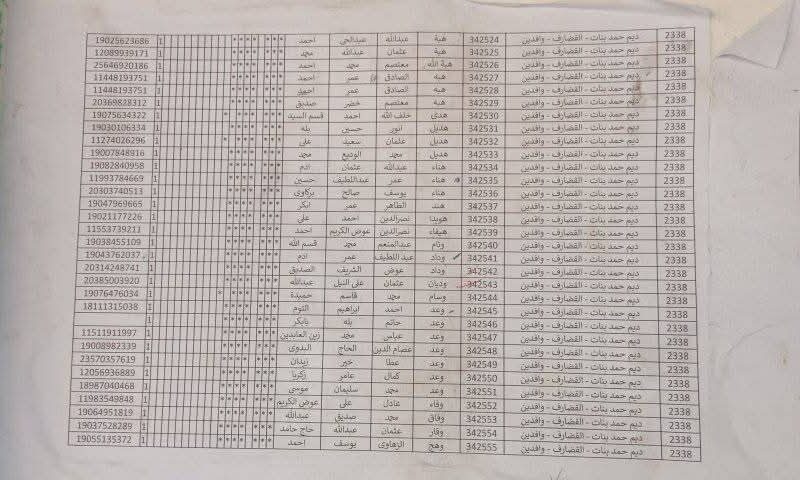 2338 ديم حمد بنات - القضارف - وافدين 342524 هبة عبدالله عبدالحى احمد *** **** 1 19025623686
2338 ديم حمد بنات - القضارف - وافدين 342525 هبه عثمان عبدالله محمد *** **** 1 12089939171
2338 ديم حمد بنات - القضارف - وافدين 342526 هبة الله معتصم محمد احمد *** **** 1 25646920186
2338 ديم حمد بنات - القضارف - وافدين 342527 هبه الصادق عمر احمد *** **** 1 11448193751
2338 ديم حمد بنات - القضارف - وافدين 342528 هبه الصادق عمر احمد *** **** 1 11448193751
2338 ديم حمد بنات - القضارف - وافدين 342529 هبه معتصم خضر صديق *** **** 1 20369828312
2338 ديم حمد بنات - القضارف - وافدين 342530 هدى خلف الله احمد قسم السيد *** **** * 1 19075634322
2338 ديم حمد بنات - القضارف - وافدين 342531 هديل انور حسين بله *** **** 1 19030106334
2338 ديم حمد بنات - القضارف - وافدين 342532 هديل عثمان سعيد على *** **** * 1 11274026296
2338 ديم حمد بنات - القضارف - وافدين 342533 هديل محمد الوديع محمد *** **** 1 19007848916
2338 ديم حمد بنات - القضارف - وافدين 342534 هناء عبدالله عثمان ادم *** **** 1 19082840958
2338 ديم حمد بنات - القضارف - وافدين 342535 هناء عمر عبداللطيف حسين *** **** * 1 11993784669
2338 ديم حمد بنات - القضارف - وافدين 342536 هناء يوسف صالح بركاوى *** **** 1 20303740513
2338 ديم حمد بنات - القضارف - وافدين 342537 هند الطاهر عمر ابكر *** **** 1 19047969665
2338 ديم حمد بنات - القضارف - وافدين 342538 هويدا نصرالدين احمد على *** **** 1 19021177226
2338 ديم حمد بنات - القضارف - وافدين 342539 هيفاء نصرالدين عوض الكريم احمد *** **** 1 11553739211
2338 ديم حمد بنات - القضارف - وافدين 342540 وئام عبدالمنعم محمد قسم الله *** **** 1 19038455109
2338 ديم حمد بنات - القضارف - وافدين 342541 وداد عبد اللطيف عمر ادم *** **** 1 19043762037
2338 ديم حمد بنات - القضارف - وافدين 342542 وداد عوض الشريف الصديق *** **** 1 20314248741
2338 ديم حمد بنات - القضارف - وافدين 342543 وديان عثمان على النيل عبدالله *** **** 1 20385003920
2338 ديم حمد بنات - القضارف - وافدين 342544 وسام محمد قاسم حميدة *** **** * 1 19076476034
2338 ديم حمد بنات - القضارف - وافدين 342545 وعد احمد ابراهيم التوم *** **** 1 18111315038
2338 ديم حمد بنات - القضارف - وافدين 342546 وعد حاتم بله بابكر *** **** 1
2338 ديم حمد بنات - القضارف - وافدين 342547 وعد عباس محمد زين العابدين *** **** 1 11511911997
2338 ديم حمد بنات - القضارف - وافدين 342548 وعد عصام الدين الحاج البدوى *** **** 1 19008982339
2338 ديم حمد بنات - القضارف - وافدين 342549 وعد عطا خير زيدان *** **** 1 23570357619
2338 ديم حمد بنات - القضارف - وافدين 342550 وعد كمال عامر زكريا *** **** 1 12056936889
2338 ديم حمد بنات - القضارف - وافدين 342551 وعد محمد سليمان موسى *** **** 1 18987040468
2338 ديم حمد بنات - القضارف - وافدين 342552 وفاء عادل على عوض الكريم *** **** 1 11983549848
2338 ديم حمد بنات - القضارف - وافدين 342553 وفاق محمد صديق عبدالله *** **** 1 19064951819
2338 ديم حمد بنات - القضارف - وافدين 342554 وقار عثمان عبدالله حاج حامد *** **** 1 19037528289
2338 ديم حمد بنات - القضارف - وافدين 342555 وهج الزهاوى يوسف احمد *** **** 1 19055135372